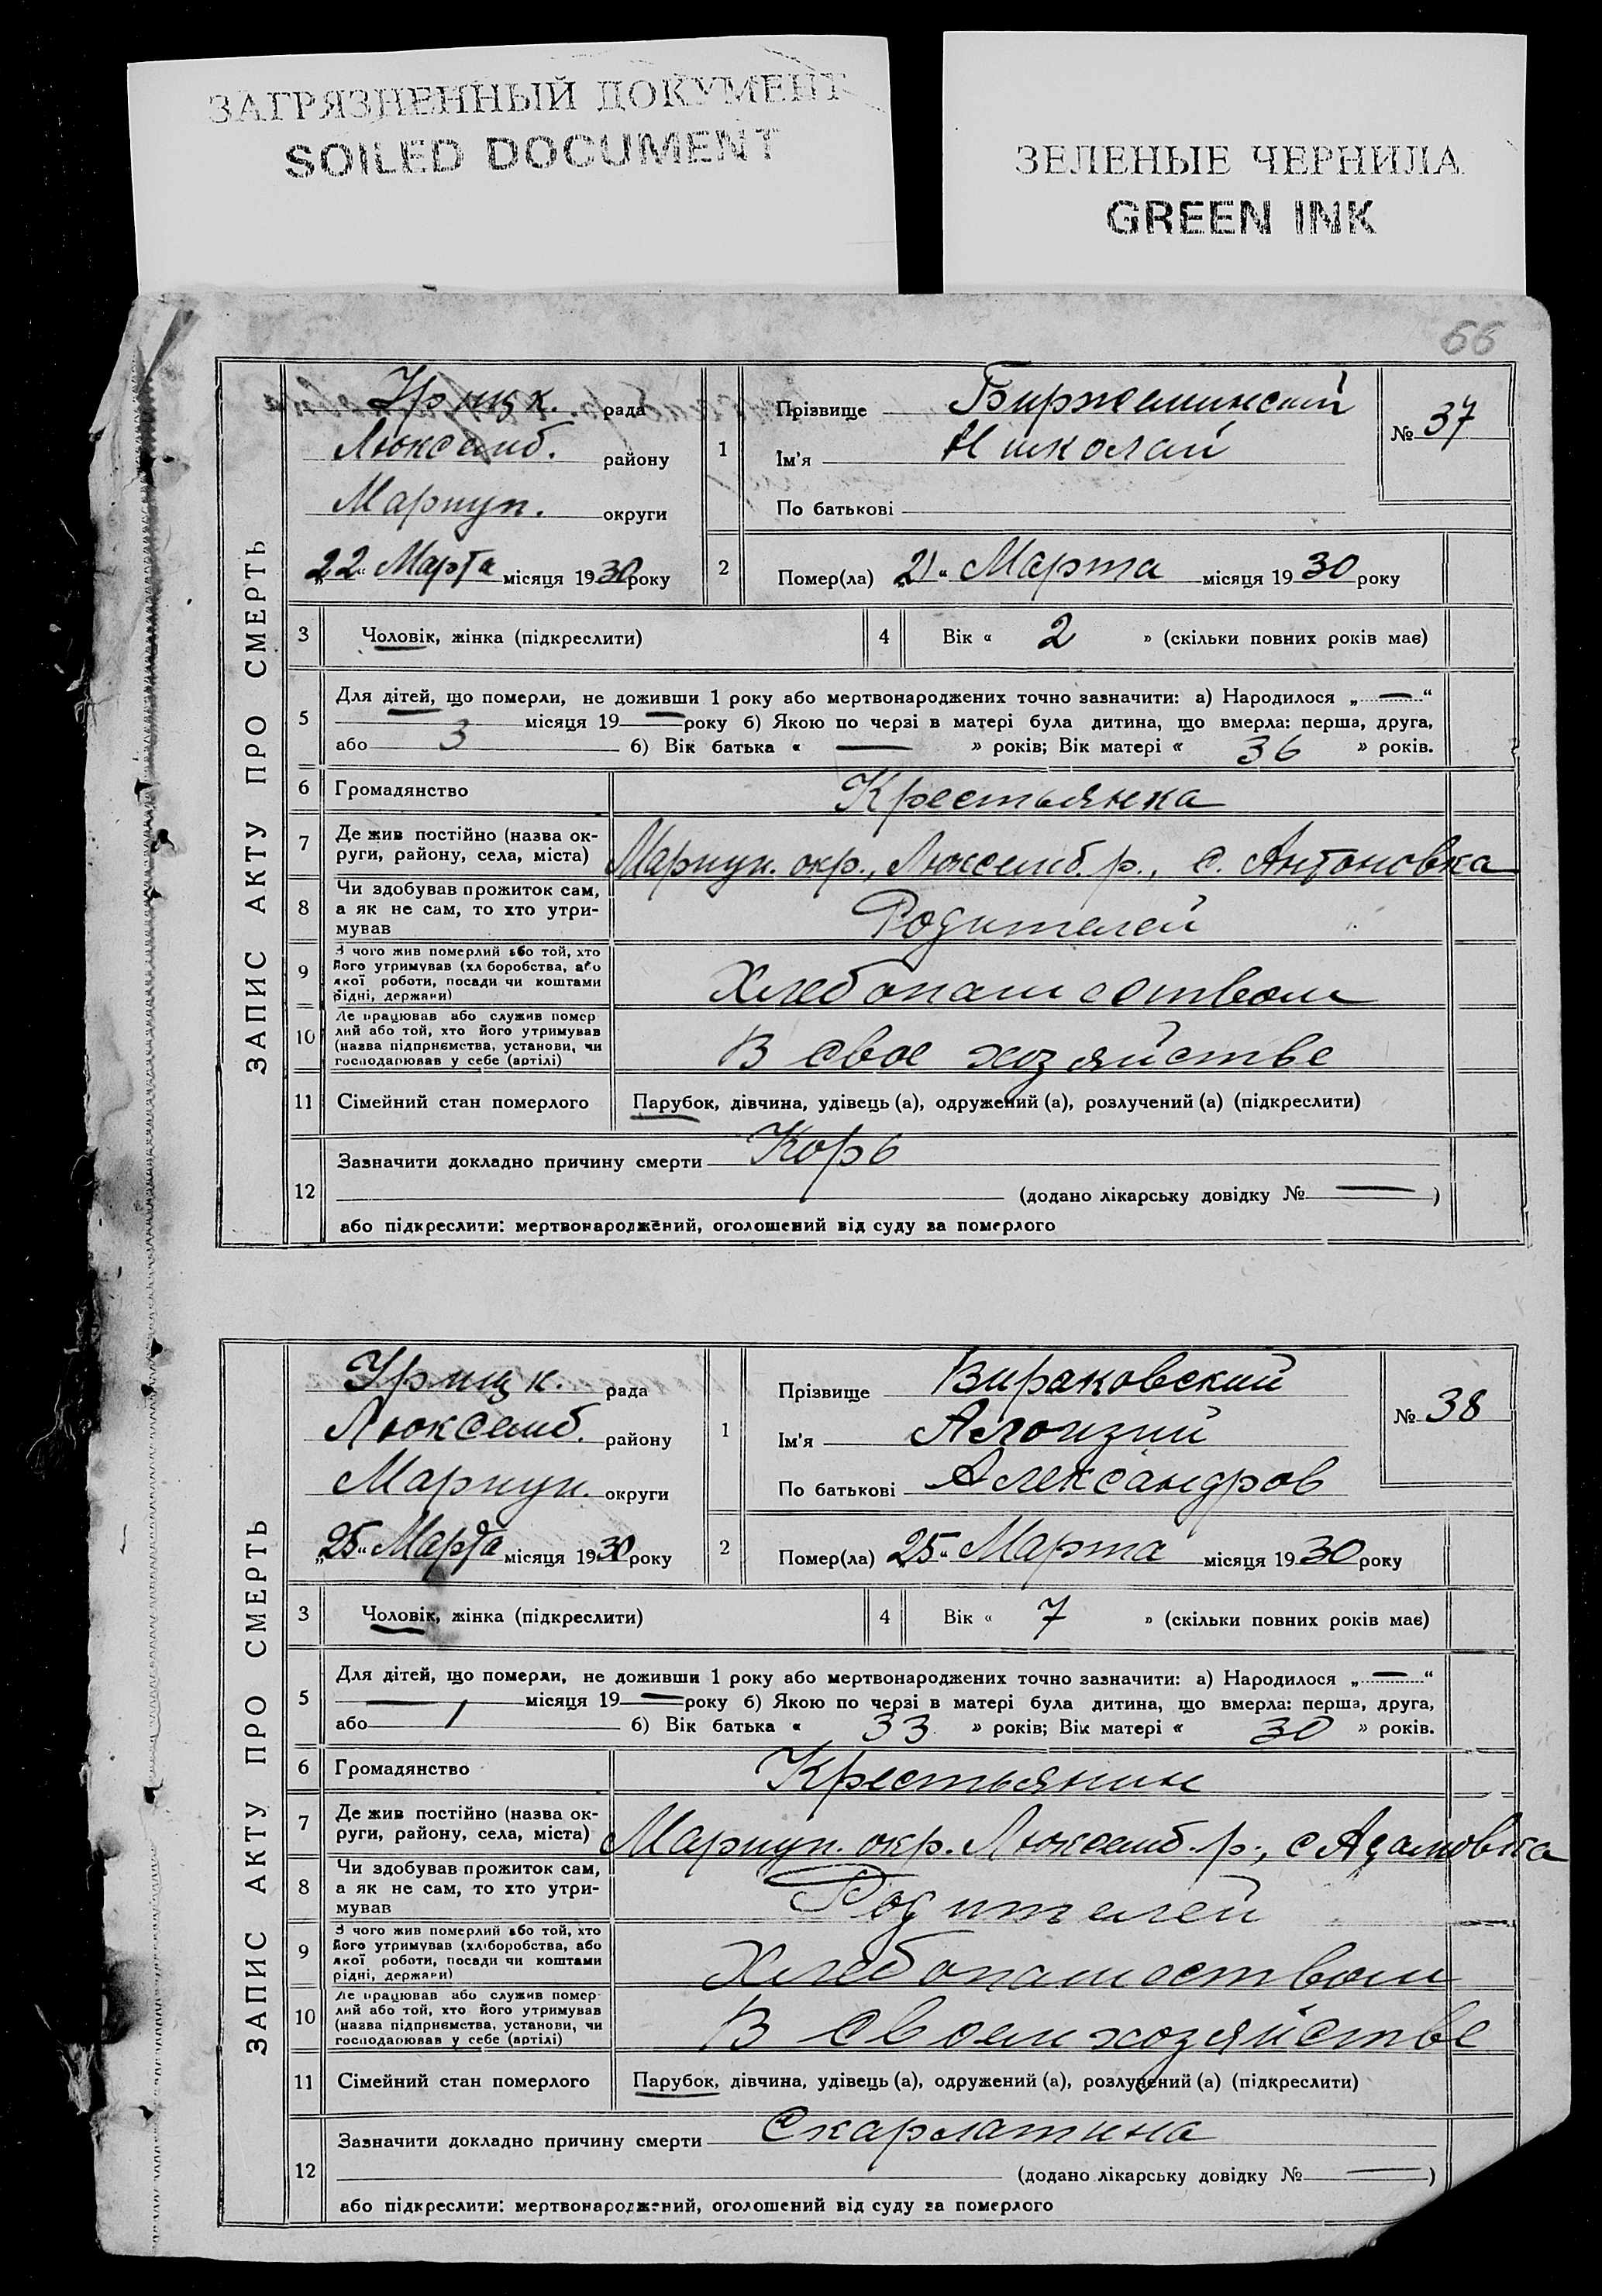 ЗАГРЯЗНЕННЫЙ ДОКУМЕНТ
SOILED DOCUMENT
ЗЕЛЕНЫЕ ЧЕРНИЛА
GREEN INK
66
ЗАПИС АКТУ ПРО СМЕРТЬ
Урицк. рада
Люксемб. району
Мариуп. округи
„22“ Марта місяця 1930 року
1
Прізвище Биржешинский
Ім'я Николай
По батькові
№ 37
2
Помер(ла) „21“ Марта місяця 1930 року
3 Чоловік, жінка (підкреслити)
4 Вік « 2 » (скільки повних років має)
5 Для дітей, що померли, не доживши 1 року або мертвонароджених точно зазначити: а) Народилося „—“
місяця 19—року б) Якою по черзі в матері була дитина, що вмерла: перша, друга,
або 3 б) Вік батька « — » років; Вік матері « 36 » років.
6 Громадянство Крестьянка
7 Де жив постійно (назва округи, району, села, міста) Мариуп. окр., Люксемб. р., с. Антоновка
8 Чи здобував прожиток сам,
а як не сам, то хто утри-
мував Родителей
9 З чого жив померлий або той, хто
його утримував (хліборобства, або
якої роботи, посади чи коштами
рідні, держави) Хлебопашеством
10 Де працював або служив помер-
лий або той, хто його утримував
(назва підприємства, установи, чи
господарював у себе (артілі) В свое хозяйстве
11 Сімейний стан померлого Парубок, дівчина, удівець (а), одружений (а), розлучений (а) (підкреслити)
12 Зазначити докладно причину смерти Корь
(додано лікарську довідку № — )
або підкреслити: мертвонароджений, оголошений від суду за померлого
ЗАПИС АКТУ ПРО СМЕРТЬ
Урицк. рада
Люксемб. району
Мариуп. округи
„25“ Марта місяця 1930 року
1
Прізвище Вираковский
Ім'я Алоизий
По батькові Александров
№ 38
2
Помер(ла) „25“ Марта місяця 1930 року
3 Чоловік, жінка (підкреслити)
4 Вік « 7 » (скільки повних років має)
5 Для дітей, що померли, не доживши 1 року або мертвонароджених точно зазначити: а) Народилося „—“
— місяця 19—року б) Якою по черзі в матері була дитина, що вмерла: перша, друга,
або 1 б) Вік батька « 33 » років; Вік матері « 30 » років.
6 Громадянство Крестьянин
7 Де жив постійно (назва округи, району, села, міста) Мариуп. окр. Люксемб. р., с Адамовка
8 Чи здобував прожиток сам,
а як не сам, то хто утри-
мував Родителей
9 З чого жив померлий або той, хто
його утримував (хліборобства, або
якої роботи, посади чи коштами
рідні, держави) Хлебопашеством
10 Де працював або служив помер-
лий або той, хто його утримував
(назва підприємства, установи, чи
господарював у себе (артілі) В своем хозяйстве
11 Сімейний стан померлого Парубок, дівчина, удівець (а), одружений (а), розлучений (а) (підкреслити)
12 Зазначити докладно причину смерти Скарлатина
(додано лікарську довідку № — )
або підкреслити: мертвонароджений, оголошений від суду за померлого